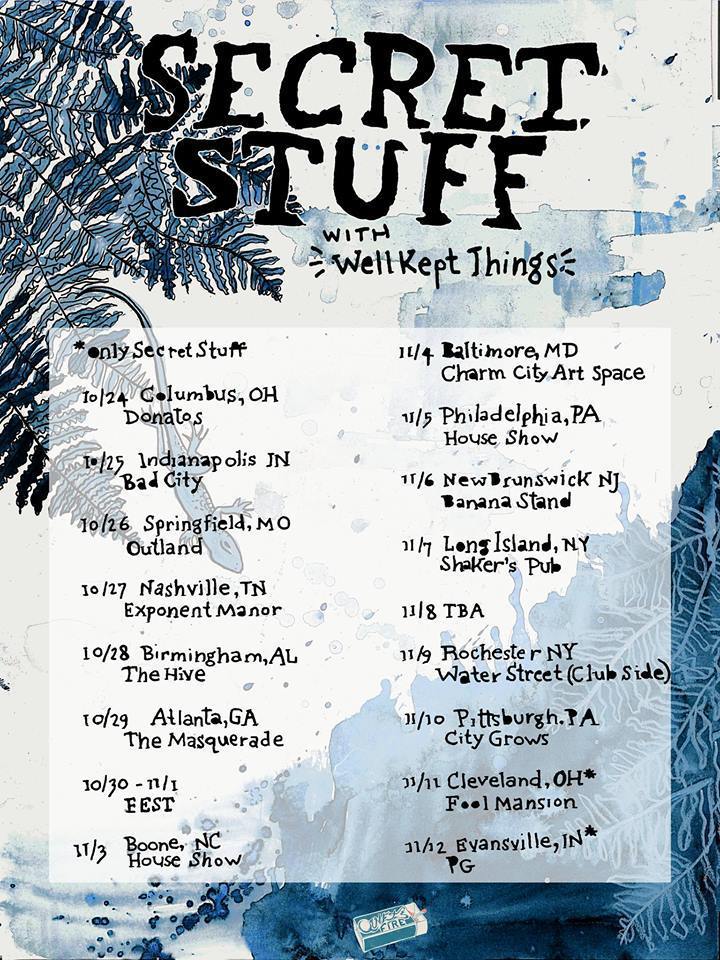 SECRET
STUFF
WITH
Well Kept Things
*only Secret Stuff
10/24 Columbus, OH
Donatos
10/25 Indianapolis IN
Bad City
10/26 Springfield, MO
Outland
10/27 Nashville, TN
Exponent Manor
10/28 Birmingham, AL
The Hive
10/29 Atlanta, GA
The Masquerade
10/30 - 11/1
FEST
11/3 Boone, NC
House Show
11/4 Baltimore, MD
Charm City Art Space
11/5 Philadelphia, PA
House Show
11/6 New Brunswick NJ
Banana Stand
11/7 Long Island, NY
Shaker's Pub
11/8 TBA
11/9 Rochester NY
Water Street (Club Side)
11/10 Pittsburgh. PA
City Grows
11/11 Cleveland, OH*
Fool Mansion
11/12 Evansville, IN*
PG
FIRE